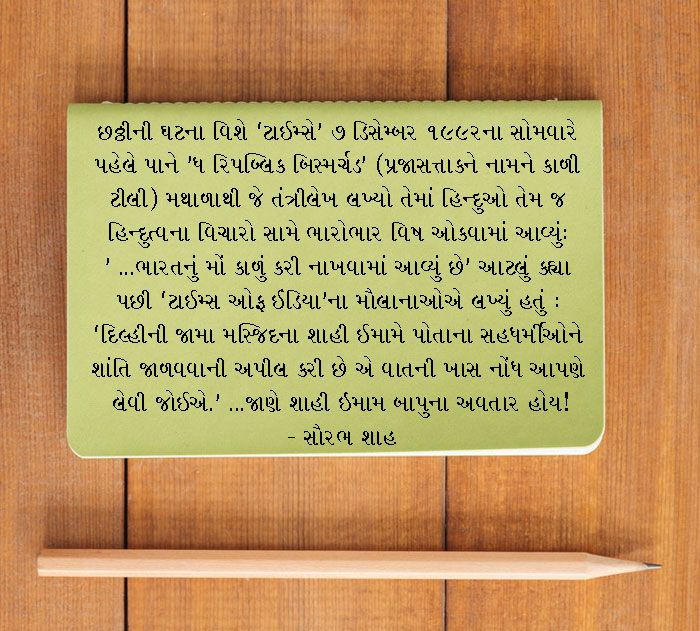 છઠ્ઠીની ઘટના વિશે ‘ટાઈમ્સે’ ૭ ડિસેમ્બર ૧૯૯૨ના સોમવારે
પહેલે પાને ’ધ રિપબ્લિક બિસ્મર્ચડ’ (પ્રજાસત્તાકને નામને કાળી
ટીલી) મથાળાથી જે તંત્રીલેખ લખ્યો તેમાં હિન્દુઓ તેમ જ
હિન્દુત્વના વિચારો સામે ભારોભાર વિષ ઓકવામાં આવ્યુંઃ
’ ...ભારતનું મોં કાળું કરી નાખવામાં આવ્યું છે’ આટલું કહ્યા
પછી ‘ટાઈમ્સ ઓફ ઈંડિયા’ના મૌલાનાઓએ લખ્યું હતું :
‘દિલ્હીની જામા મસ્જિદના શાહી ઈમામે પોતાના સહધર્મીઓને
શાંતિ જાળવવાની અપીલ કરી છે એ વાતની ખાસ નોંધ આપણે
લેવી જોઈએ.’ ...જાણે શાહી ઈમામ બાપુના અવતાર હોય!
- સૌરભ શાહ